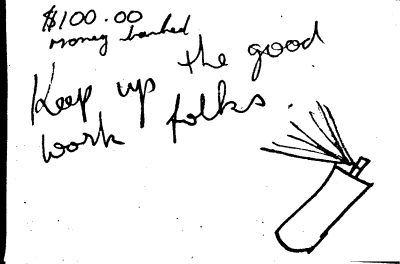 $100.00
money banked
Keep up the good
work folks.